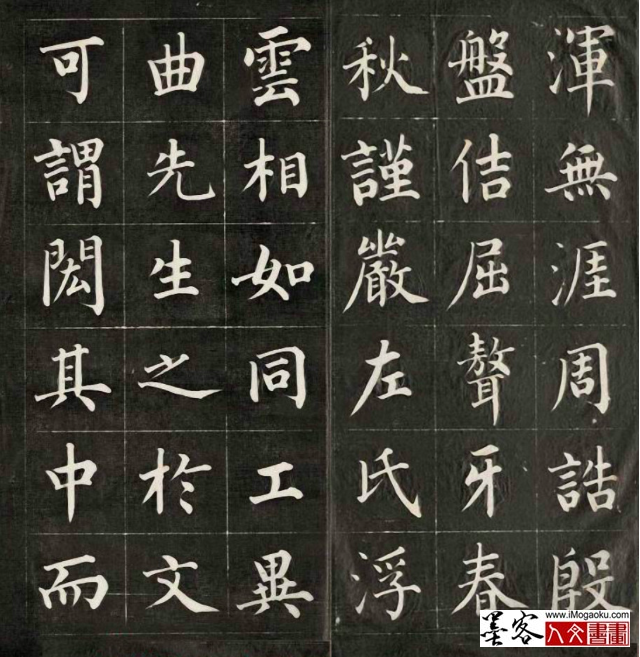 渾無涯周誥殷
盤佶屈聱牙春
秋謹嚴左氏浮
雲相如同工異
曲先生之於文
可謂閎其中而
墨客 www.iMogaoku.com
人文書畫